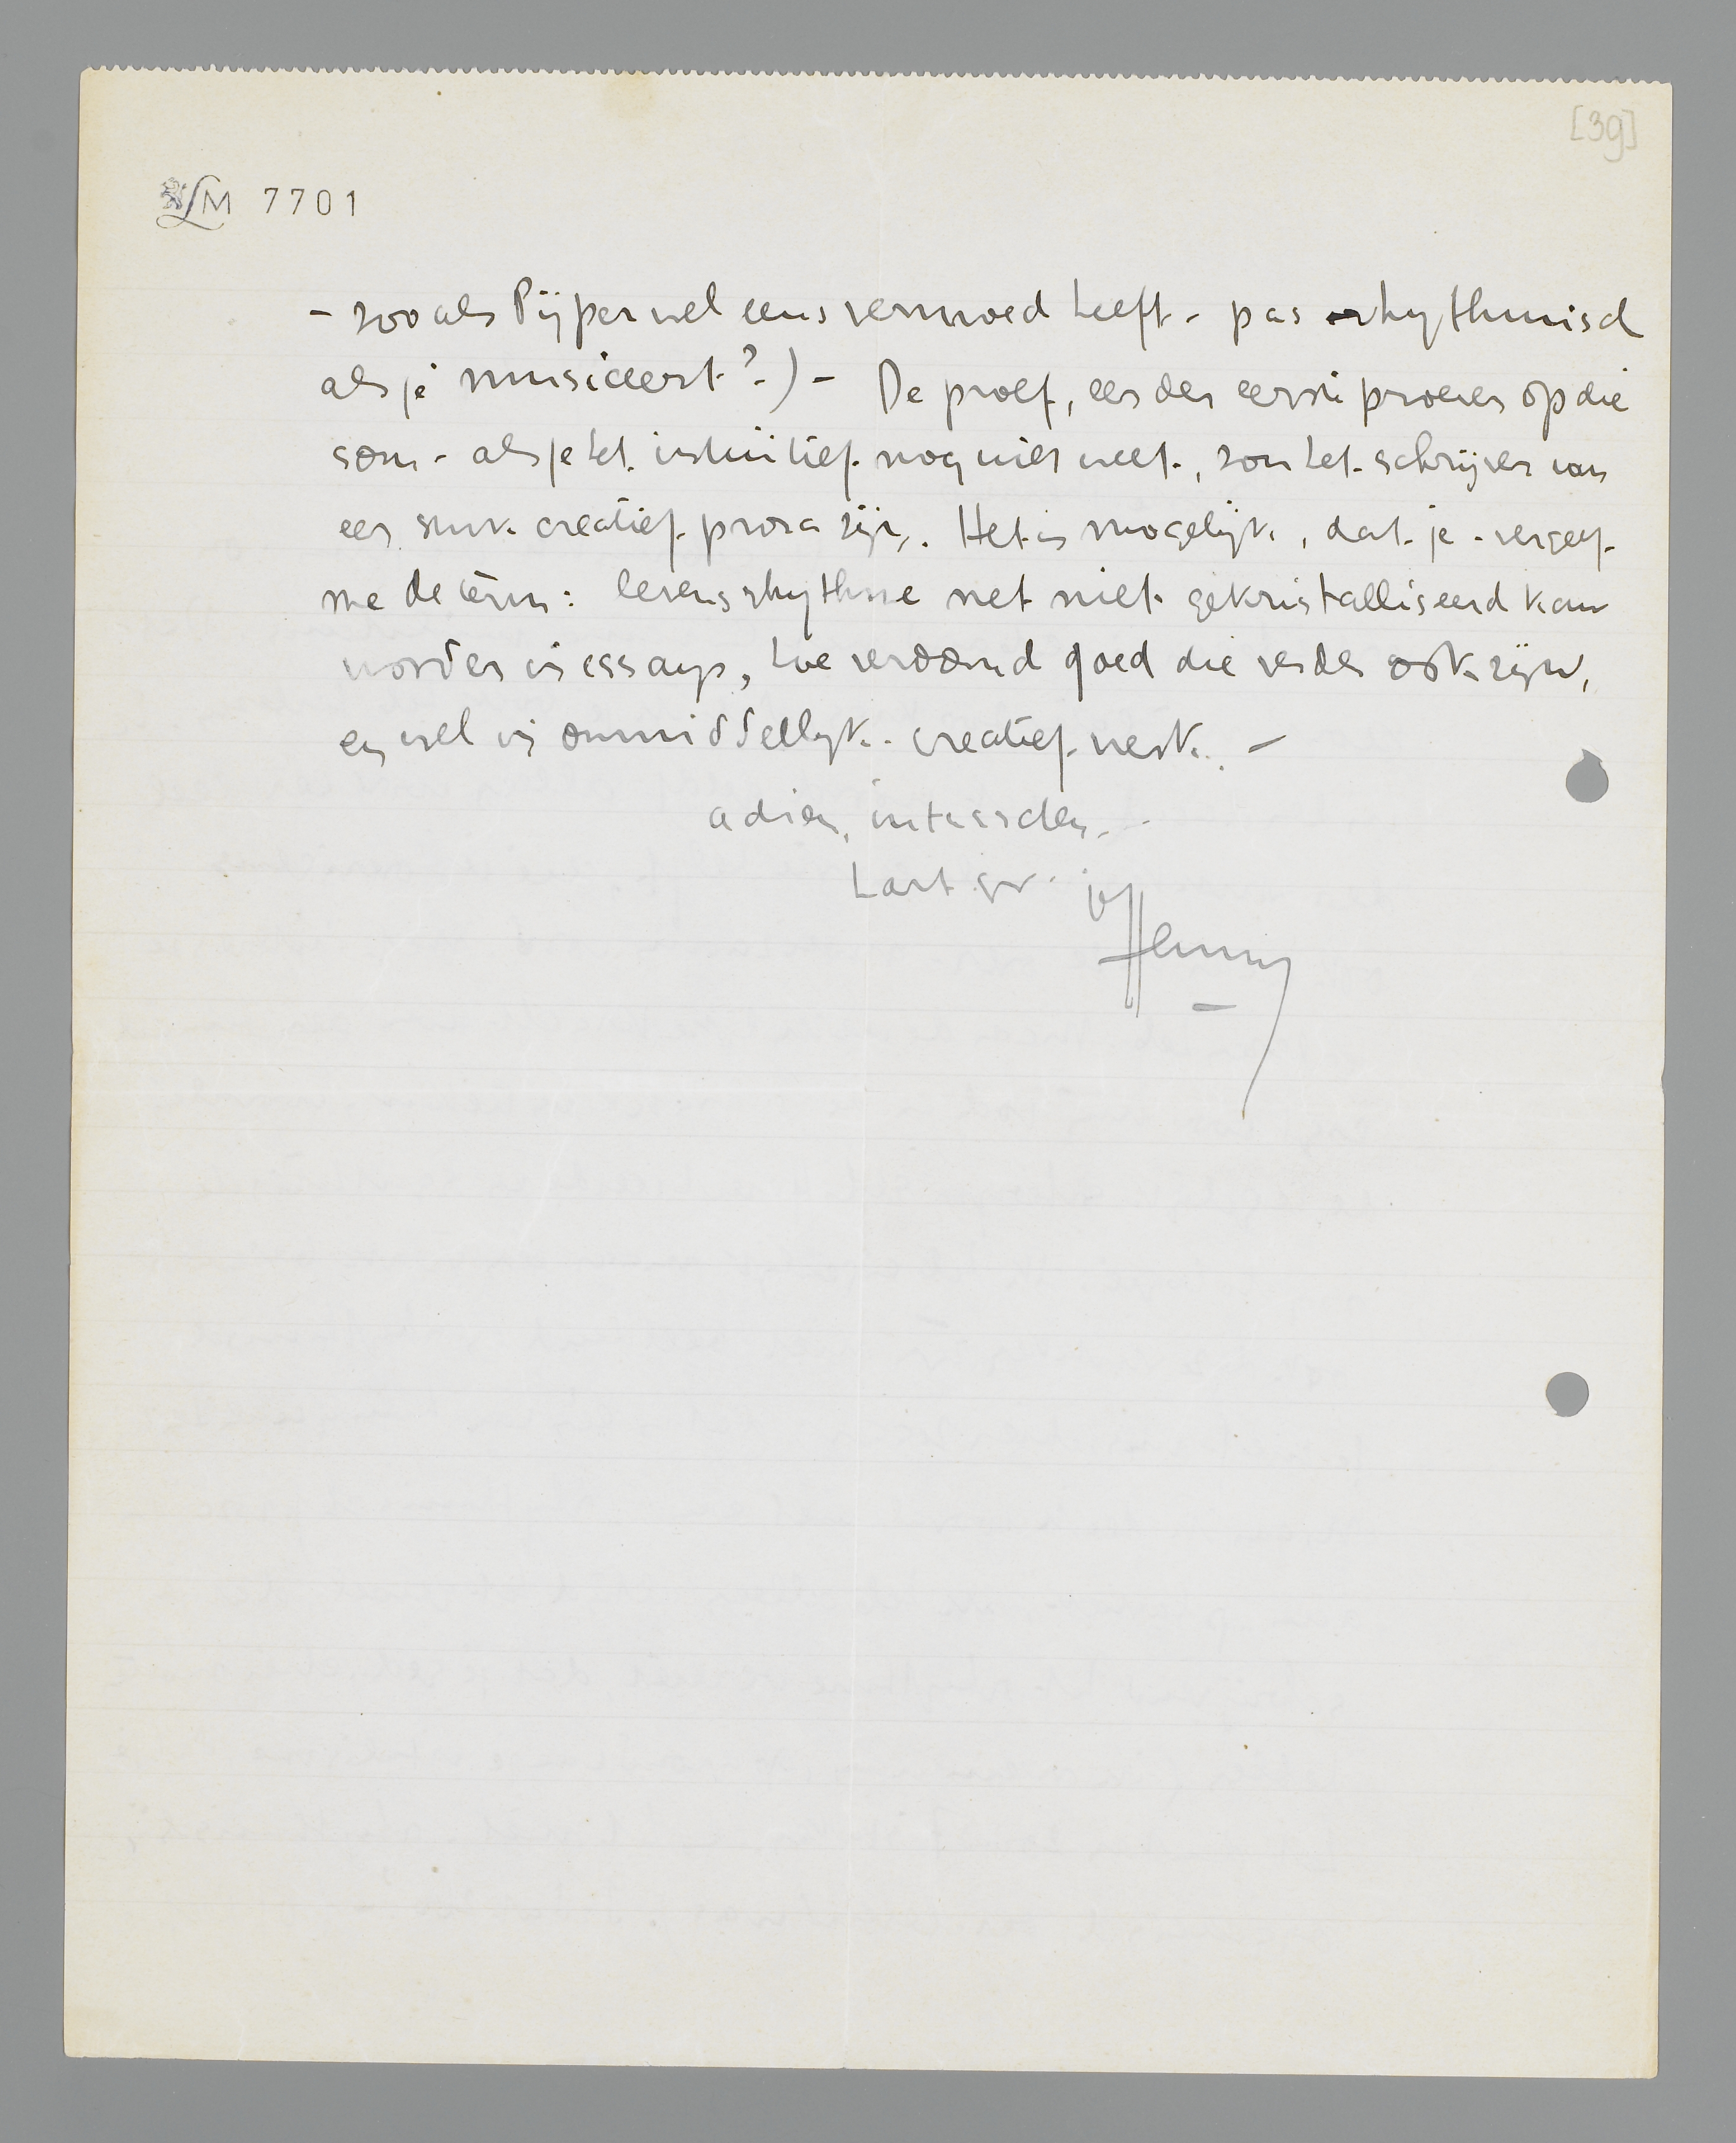 [39]
LM 7701
- zooals Pijper wel eens vermoed heeft - pas rhythmisch
als je musiceert?) - De proef, een der eerste proeven op die
som - als je het intuïtief nog niet weet, zou het schrijven van
een stuk creatief proza zijn. Het is mogelijk, dat je - vergeef
me de term: levensrhythme net niet gekristalliseerd kan
worden in essays, hoe verdomd goed die verder ook zijn,
en wel in onmiddellijk creatief werk. -
adieu, intusschen.
hart. gr.
Henny